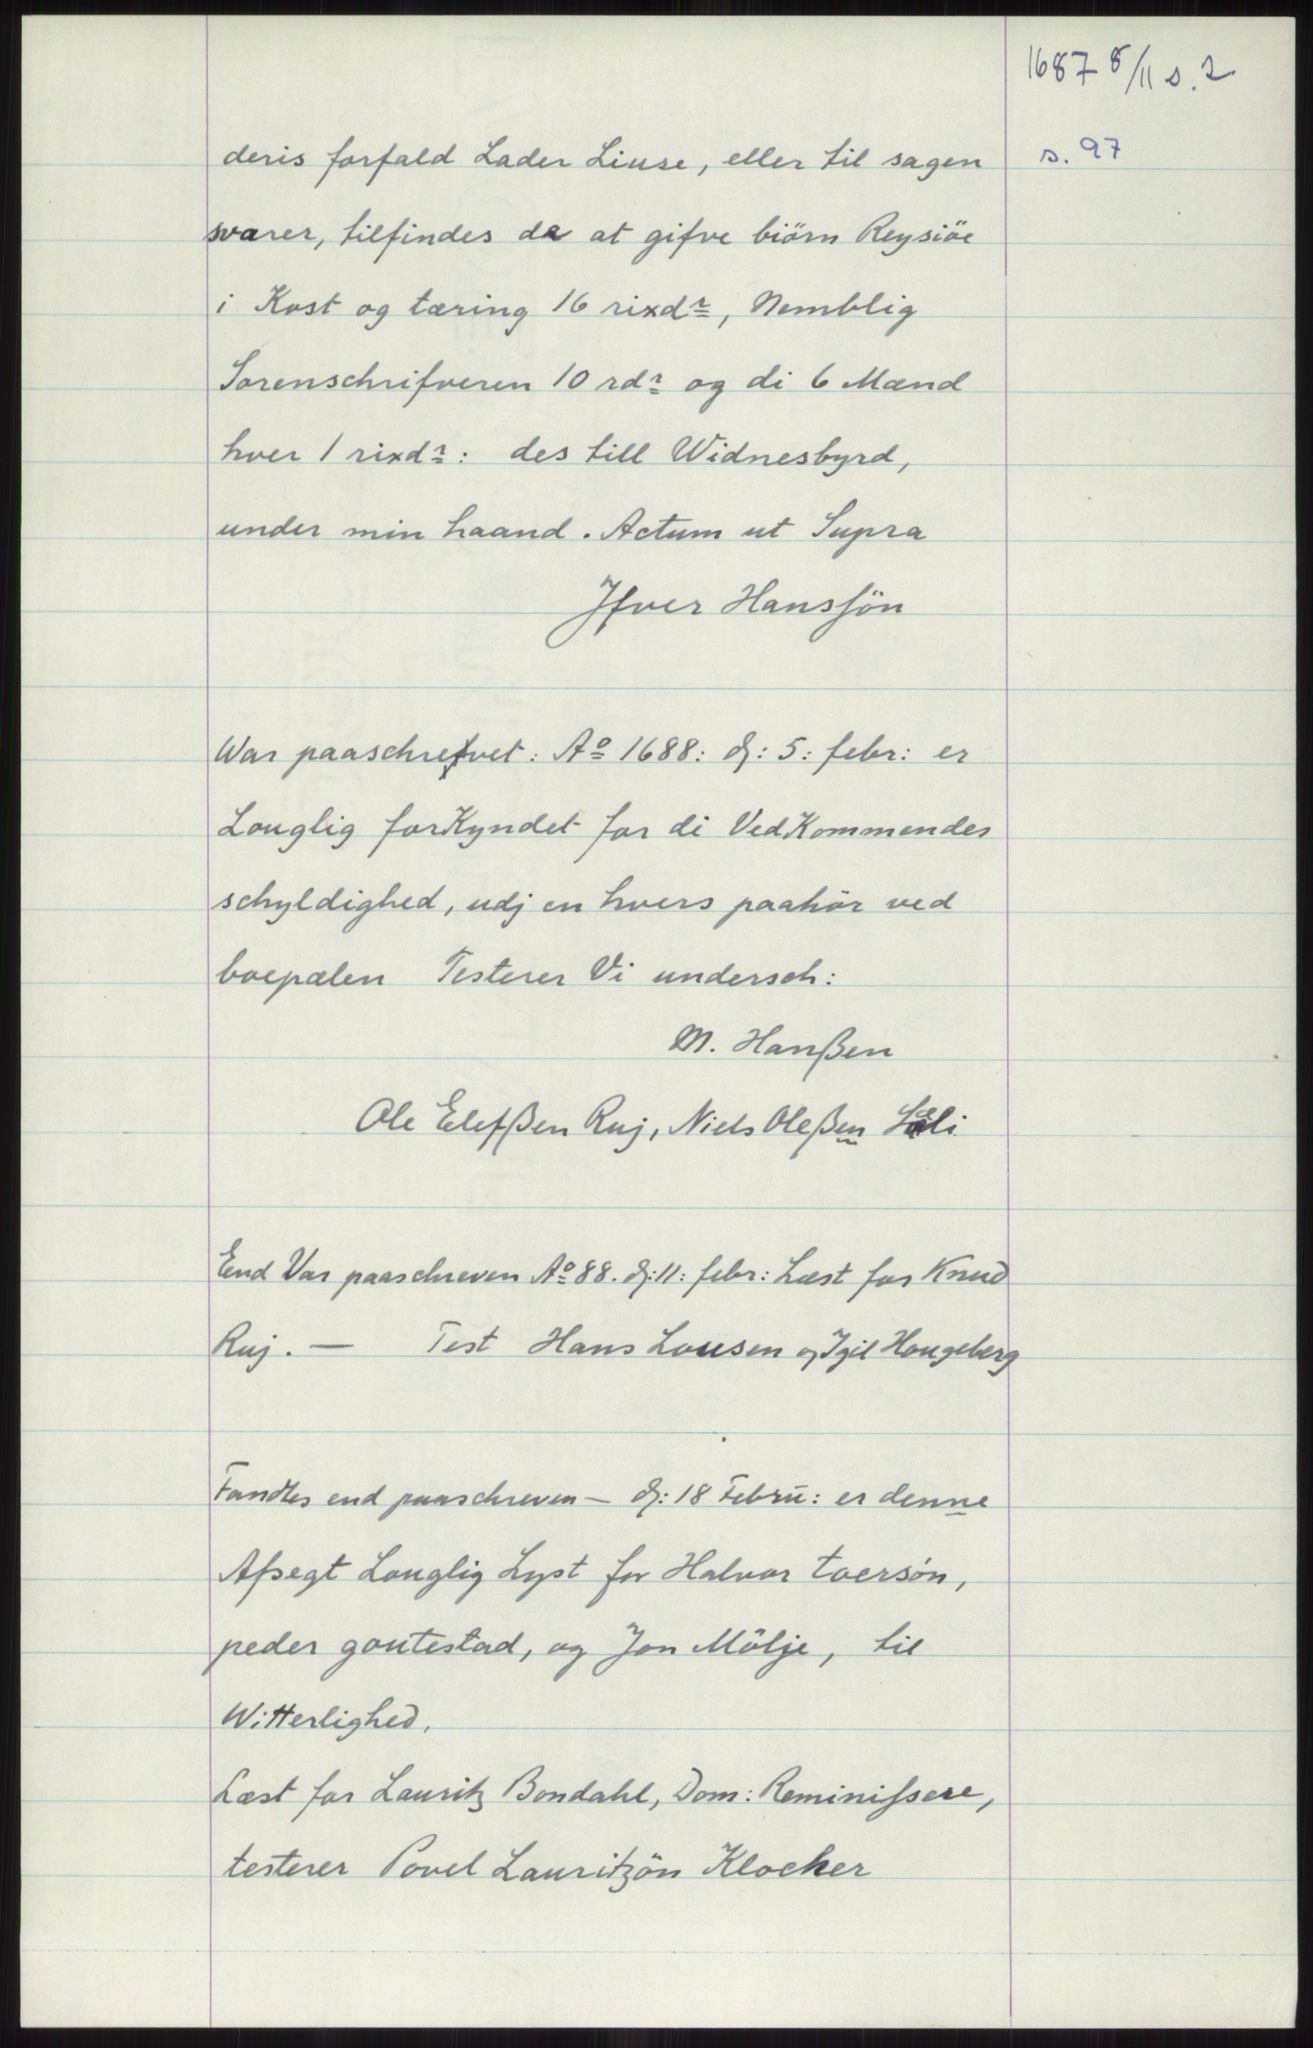 1687 8/11 s. 2
s. 97
deris forfald Lader Liuse, eller til sagen
svarer, tilfindes de at gifve biörn Reysiöe
i Kost og tæring 16 rixdr, Nemblig
Sorenschrifveren 10 rdr og di 6 Mænd
hver 1 rixdr: des till Widnesbyrd,
under min haand. Actum ut Supra
Jfver Hansſön
War paaschrefvet: Ao 1688: dj: 5: febr: er
Louglig forKyndet for di VedKommendes
schyldighed, udj en hvers paahör ved
boepælen Testerer Vi undersch:
M. Hanßen
Ole Elefßen Ruj, Niels Oleßen Læli
End Var paaschreven Ao 88. dj: 11: febr: Læst for Knud
Ruj. — Test Hans Lousen og Igil Hougeberg
Fandtes end paaschreven — dj: 18 Febru: er denne
Afsegt Louglig Lyst for Halvor toersön,
peder goutestad, og Jon Mölje, til
Witterlighed.
Læst for Lauritz Bondahl, Dom: Reminiſsere,
testerer Povel Lauritzön Klocker